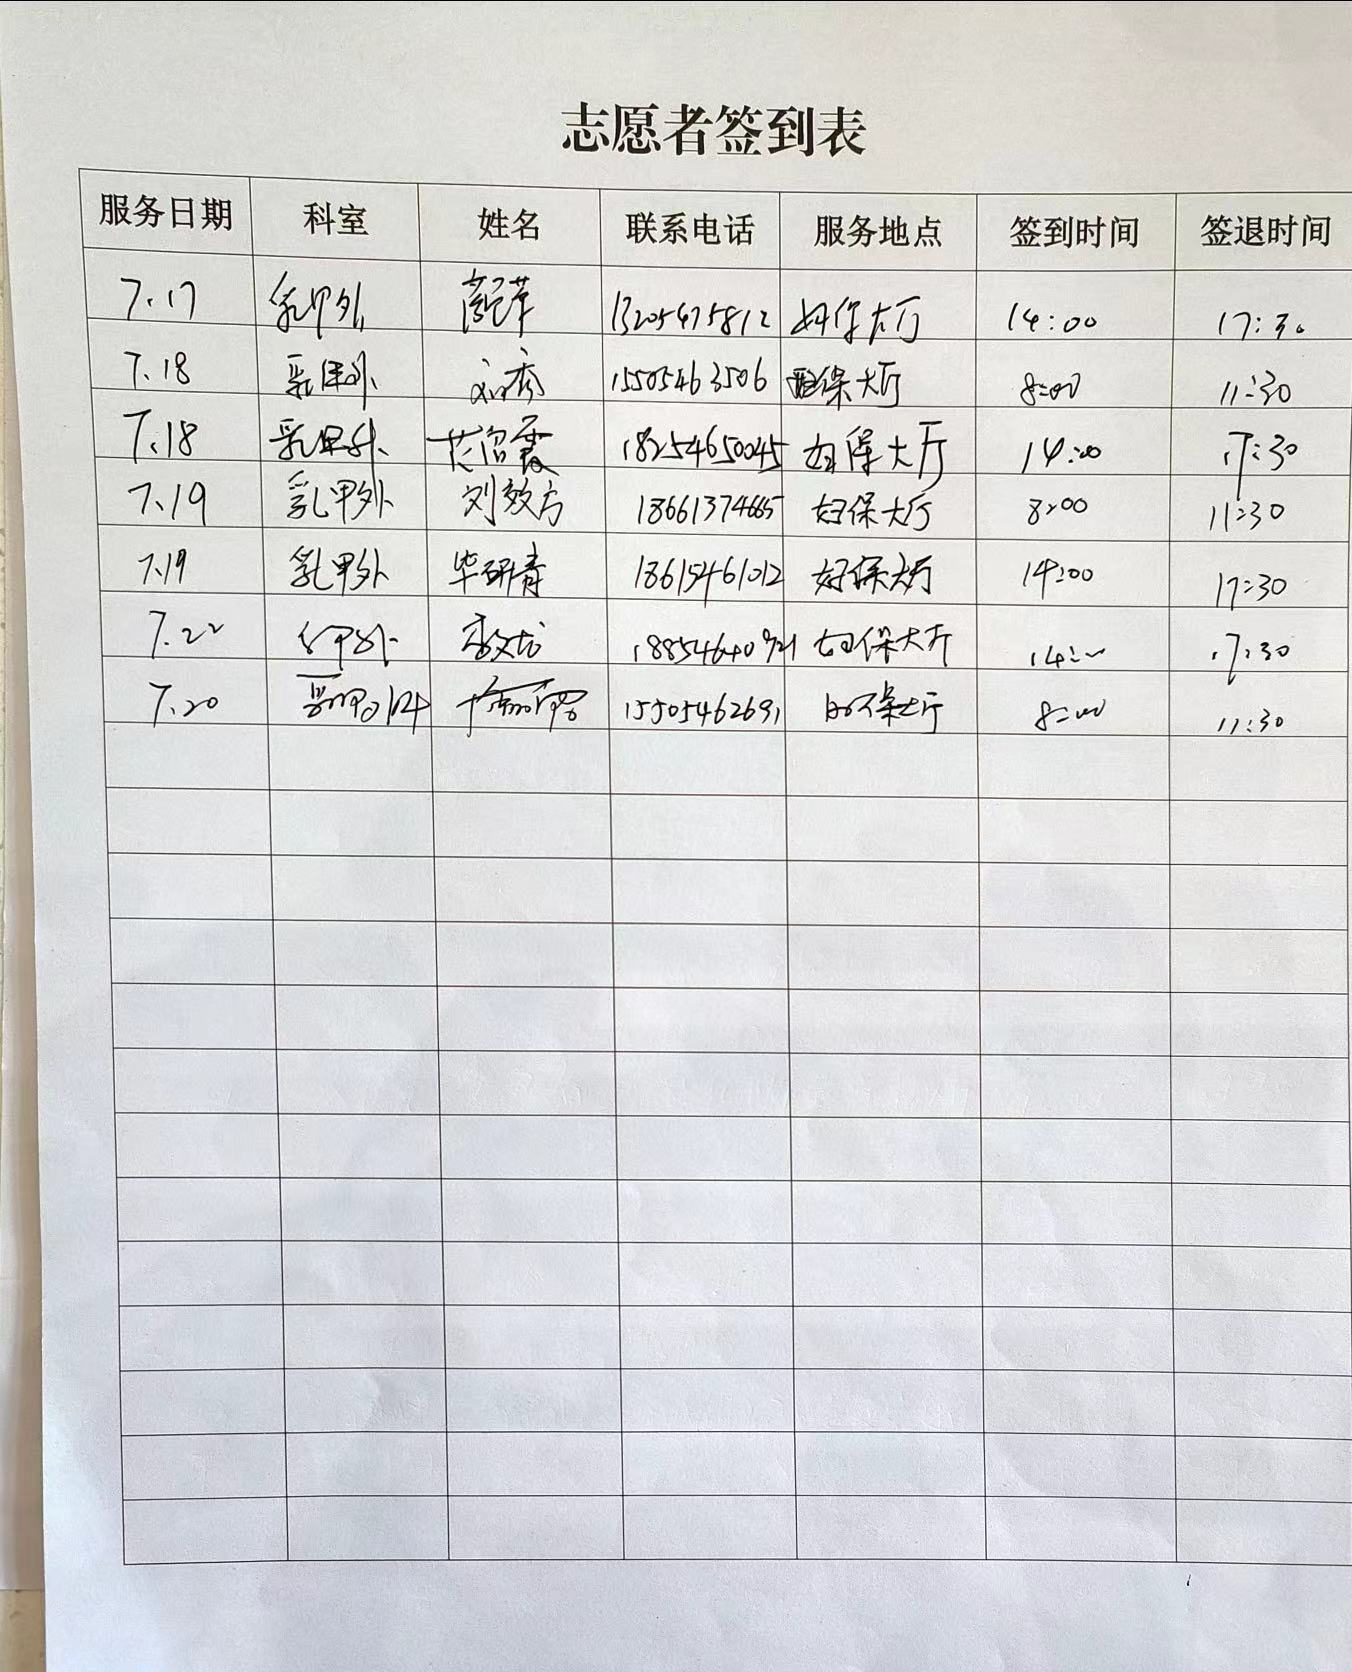 志愿者签到表
服务日期 科室 姓名 联系电话 服务地点 签到时间 签退时间
7.17 乳甲外 13205475812 妇保大厅 14:00 17:30
7.18 乳甲外 15505463506 妇保大厅 8:00 11:30
7.18 乳甲外 18254650045 妇保大厅 14:00 17:30
7.19 乳甲外 刘效方 18661374665 妇保大厅 8:00 11:30
7.19 乳甲外 毕研青 18615461012 妇保大厅 14:00 17:30
7.22 乳甲外 妇保大厅 14:00 17:30
7.20 15505462691 妇保大厅 8:00 11:30